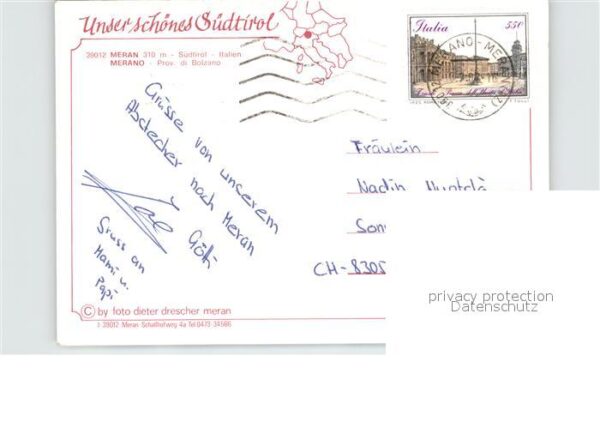 Unser schönes Südtirol
39012 MERAN 310 m - Südtirol - Italien
MERANO - Prov. di Bolzano
Italia 550
MERANO - MERAN
Grüsse von unserem
Abstecher nach Meran
Götti
Gruss an
Mami u.
Papi
Fräulein
Nadin
CH-8305
© by foto dieter drescher meran
I 39012 Meran Schaffhofweg 4a Tel. 0473 34586
privacy protection
Datenschutz